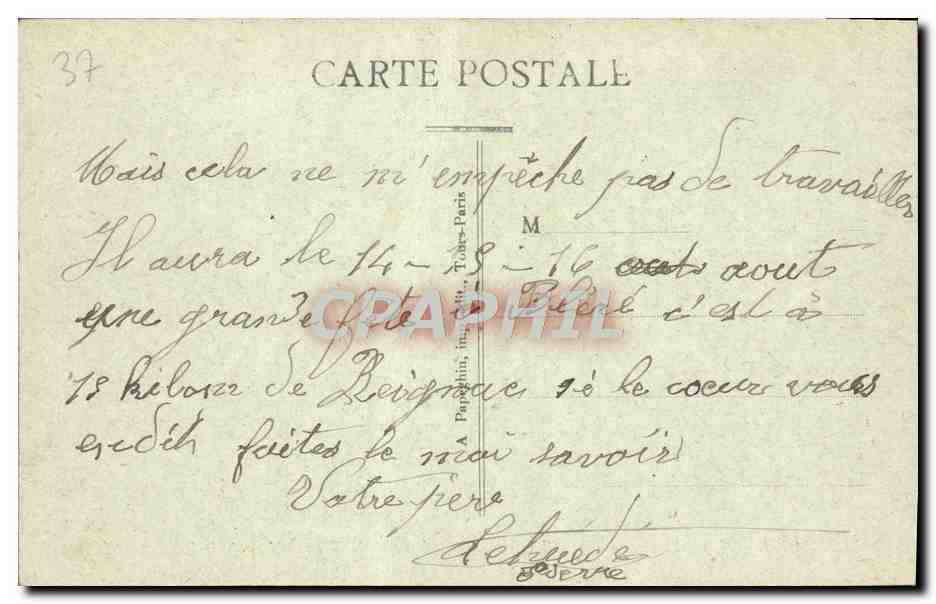 37
CARTE POSTALE
Mais cela ne m'empêche pas de travailler
M
Il aura le 14 - 15 - 16 aout
une grande fete à Bléré c'est à
15 kilom de Reignac si le coeur vous
en dit faites le moi savoir
Votre père
A Papeghin, imp.-édit., Tours-Paris
CPAPHIL